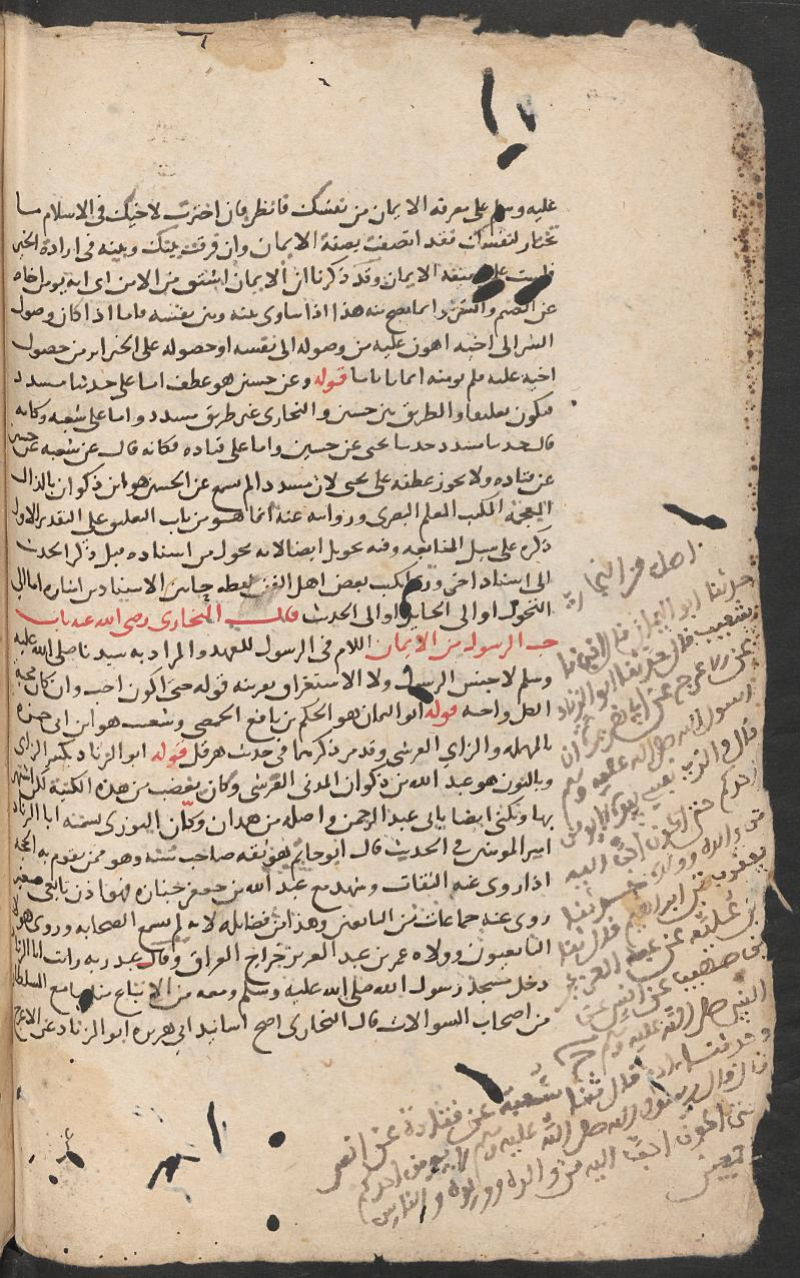 عليه وسلم على معرفة الايمان من نفسك فانظر فان اخترت لاخيك فى الاسلام ما
تختار لنفسك فقد اتصفت بصفة الايمان وان فرقت بينك وبينه فى ارادة الخير
فلست على صفة الايمان وقد ذكرنا ان الايمان اشتق من الامن اى انه يومن اخاه
عن الضيم والشر وانما يصح منه هذا اذا ساوى بينه وبين نفسه فاما اذا كان وصول
الشر الى اخيه اهون عليه من وصوله الى نفسه او حصوله على الخير اكثر من حصول
اخيه عليه فلم يومنه ايمانا تاما قوله وعن حسين هو عطف اما على حدثنا مسدد
فيكون تعليقا والطريق بين حسين والبخارى غير طريق مسدد واما على شعبه وكانه
قال حدثنا مسدد حدثنا يحيى عن حسين واما على قتاده فكانه قال عن شعبه عن حسين
عن قتاده ولا يجوز عطفه على يحيى لان مسددا لم يسمع عن الحسين هو ابن ذكوان بالذال
المعجمة المكتب المعلم البصرى وروايته عنه انما هو من باب التعليق على التقدير الاول
ذكره على سبيل المتابعه وفيه تحويل ايضا لانه يحول من اسناده قبل ذكر الحديث
الى اسناد اخر وربما يكتب بعض اهل الفن لفظه ح بين الاسنادين اشارة اما الى
التحول او الى الحايل او الى الحديث قال البخارى رضى الله عنه باب
حب الرسول من الايمان اللام فى الرسول للعهد والمراد به سيدنا صلى الله عليه
وسلم لا جنس الرسول ولا الاستغراق بقرينه قوله حتى اكون احب وان كان محبة
الكل واجبه قوله ابو اليمان هو الحكم بن نافع الحمصى وشعيب هو ابن ابى حمزة
بالمهمله والزاى القرشى وقد مر ذكرهما فى حديث هرقل قوله ابو الزناد بكسر الزاى
وبالنون هو عبد الله بن ذكوان المدنى القرشى وكان يغضب من هذه الكنية لكن اشتهر
بها ويكنى ايضا بابى عبد الرحمن واصله من همدان وكان الثورى يسميه ابا الزناد
امير المومنين فى الحديث قال ابو حاتم هو ثقه صاحب سنه وهو ممن يقوم به الحجة
اذا روى عنه الثقات وشهد مع عبد الله بن جعفر جنازه فهو اذن تابعى صغير
روى عنه جماعات من التابعين وهذا من فضايله لانه لم يسمع الصحابه وروى عنه
التابعيون وولاه عمر بن عبد العزيز خراج العراق وقال عبد ربه رايت ابا الزناد
دخل مسجد رسول الله صلى الله عليه وسلم ومعه من الاتباع مثل ما مع السلطان
من اصحاب السوالات قال البخارى اصح اسانيد ابى هريره ابو الزناد عن الاعرج
اصل من البخارى
حدثنا ابو اليمان قال انبانا
شعيب قال حدثنا ابو الزناد
عن الاعرج عن ابى هريرة ان
رسول الله صلى الله عليه وسلم
قال والذى نفسى بيده لا يومن
احدكم حتى اكون احب اليه
من والده وولده حدثنا
يعقوب بن ابراهيم قال ثنا
بن علية عن عبد العزيز
بن صهيب عن انس عن
النبى صلى الله عليه وسلم ح
وحدثنا ادم قال ثنا شعبة عن قتادة عن انس
قال قال رسول الله صلى الله عليه وسلم لا يومن احدكم
حتى اكون احب اليه من والده وولده والناس
اجمعين